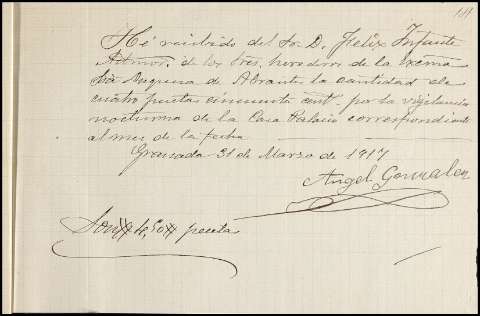 He recibido del Sr. D. Felix Infante
Admor. de los Sres. herederos de la Excma
Sra Duquesa de Abrante la cantidad de
cuatro pesetas cincuenta cent. por la vigilancia
nocturna de la Casa Palacio correspondiente
al mes de la fecha
Granada 31 de Marzo de 1917
Angel Gonzalez
Son # 4,50 # pesetas